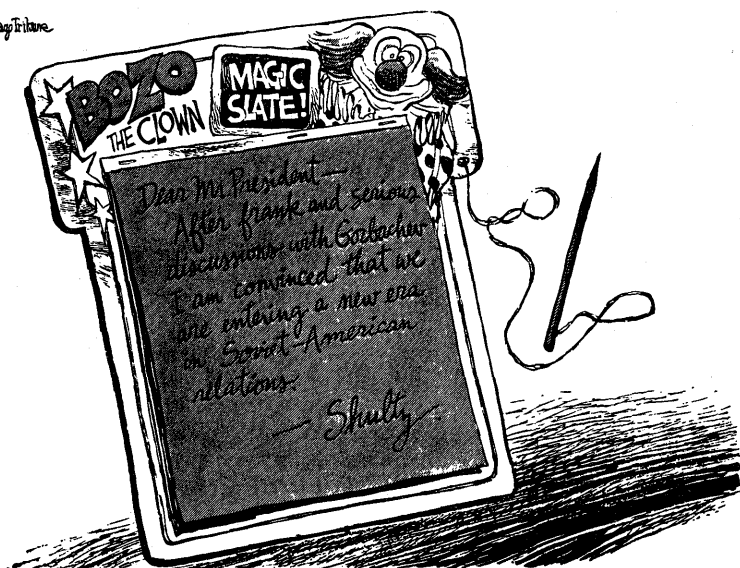 Tribune
BOZO
THE CLOWN
MAGIC
SLATE!
Dear Mr President—
After frank and serious
discussions with Gorbachev
I am convinced that we
are entering a new era
in Soviet-American
relations.
— Shultz